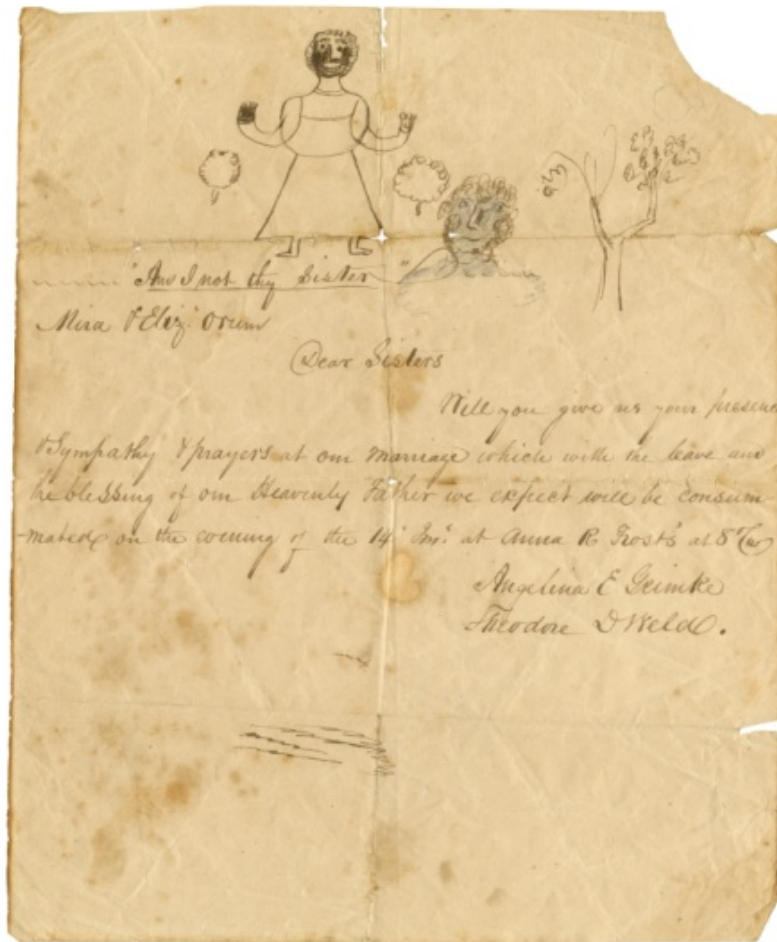 "Am I not thy Sister"
Mira & Eliz. Orum
Dear Sisters
Will you give us your presence
& Sympathy & prayers at our marriage which with the leave and
the blessing of our Heavenly Father we expect will be consum
-mated on the evening of the 14. Inst. at Anna R Frost's at 8
Angelina E Grimke
Theodore D Weld.